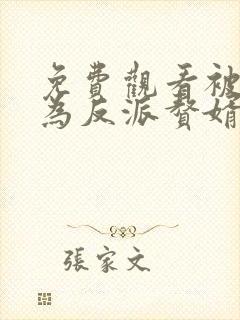 免費觀看被
為反派贅婿
張家文